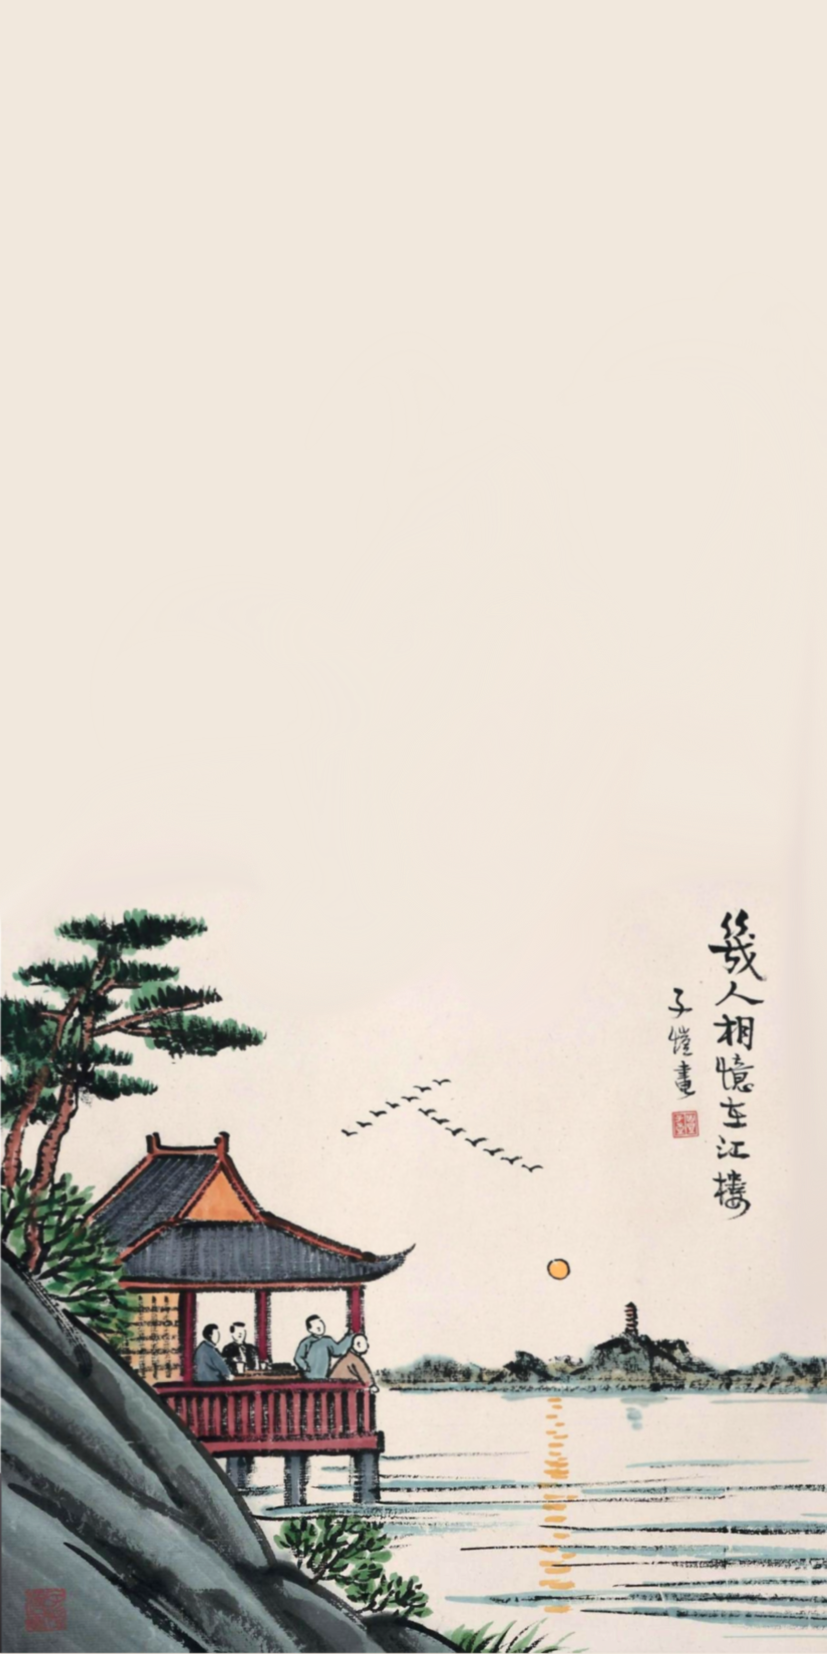 幾人相憶在江楼
子愷畫